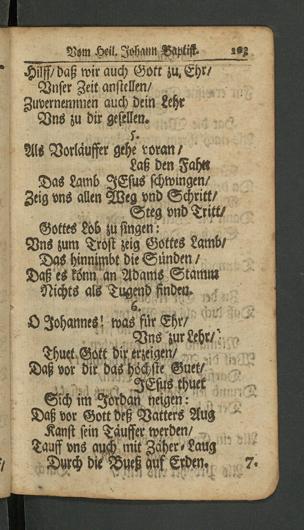 Vom Heil. Johann Baptist. 103
Hilff/ daß wir auch Gott zu Ehr/
Unser Zeit anstellen/
Zuvernemmen auch dein Lehr
Uns zu dir gesellen.
5.
Als Vorläuffer gehe voran/
Laß den Fahn
Das Lamb JEsus schwingen/
Zeig uns allen Weg und Schritt/
Steg und Tritt/
Gottes Lob zu singen:
Uns zum Trost zeig Gottes Lamb/
Das hinnimbt die Sünden/
Daß es könn an Adams Stamm
Nichts als Tugend finden.
6.
O Johannes! was für Ehr/
Uns zur Lehr/
Thuet Gott dir erzeigen/
Daß vor dir das höchste Guet/
JEsus thuet
Sich im Jordan neigen:
Daß vor Gott deß Vatters Aug
Kanst sein Täuffer werden/
Tauff uns auch mit Zäher-Laug
Durch die Bueß auf Erden. 7.